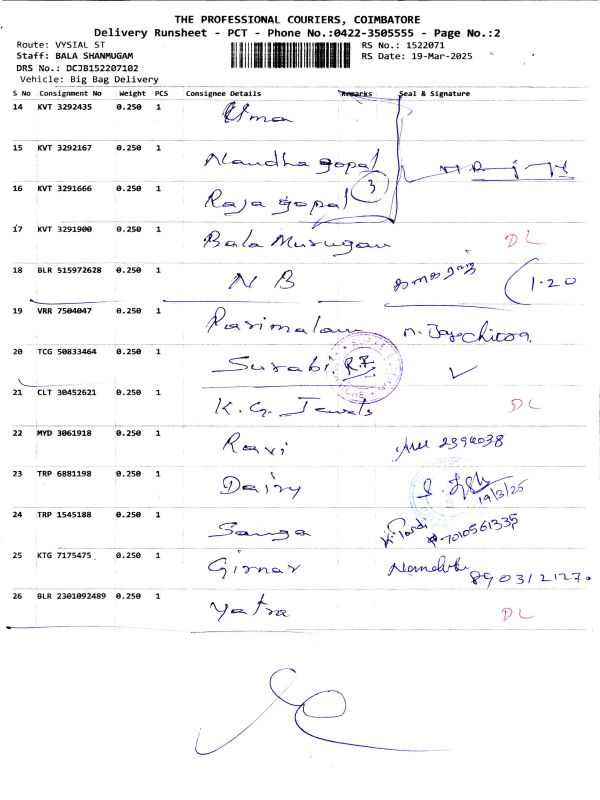 THE PROFESSIONAL COURIERS, COIMBATORE
Delivery Runsheet - PCT - Phone No.:0422-3505555 - Page No.:2
Route: VYSIAL ST
RS No.: 1522071
Staff: BALA SHANMUGAM
RS Date: 19-Mar-2025
DRS No.: DCJB152207102
Vehicle: Big Bag Delivery
S No Consignment No Weight PCS Consignee Details Remarks Seal & Signature
14 KVT 3292435 0.250 1 Uma
15 KVT 3292167 0.250 1 Nandha gopal
16 KVT 3291666 0.250 1 Raja gopal 3
17 KVT 3291900 0.250 1 Bala Murugan DL
18 BLR 515972628 0.250 1 N B கனகராஜ் 1.20
19 VRR 7504047 0.250 1 Parimalam
20 TCG 50833464 0.250 1 Surabi
21 CLT 30452621 0.250 1 K. G. Jewels DL
22 MYD 3061918 0.250 1 Ravi 2394038
23 TRP 6881198 0.250 1 Dairy 19/3/25
24 TRP 1545188 0.250 1 Sanga 7010561335
25 KTG 7175475 0.250 1 Girnar
26 BLR 2301092489 0.250 1 Yatra DL